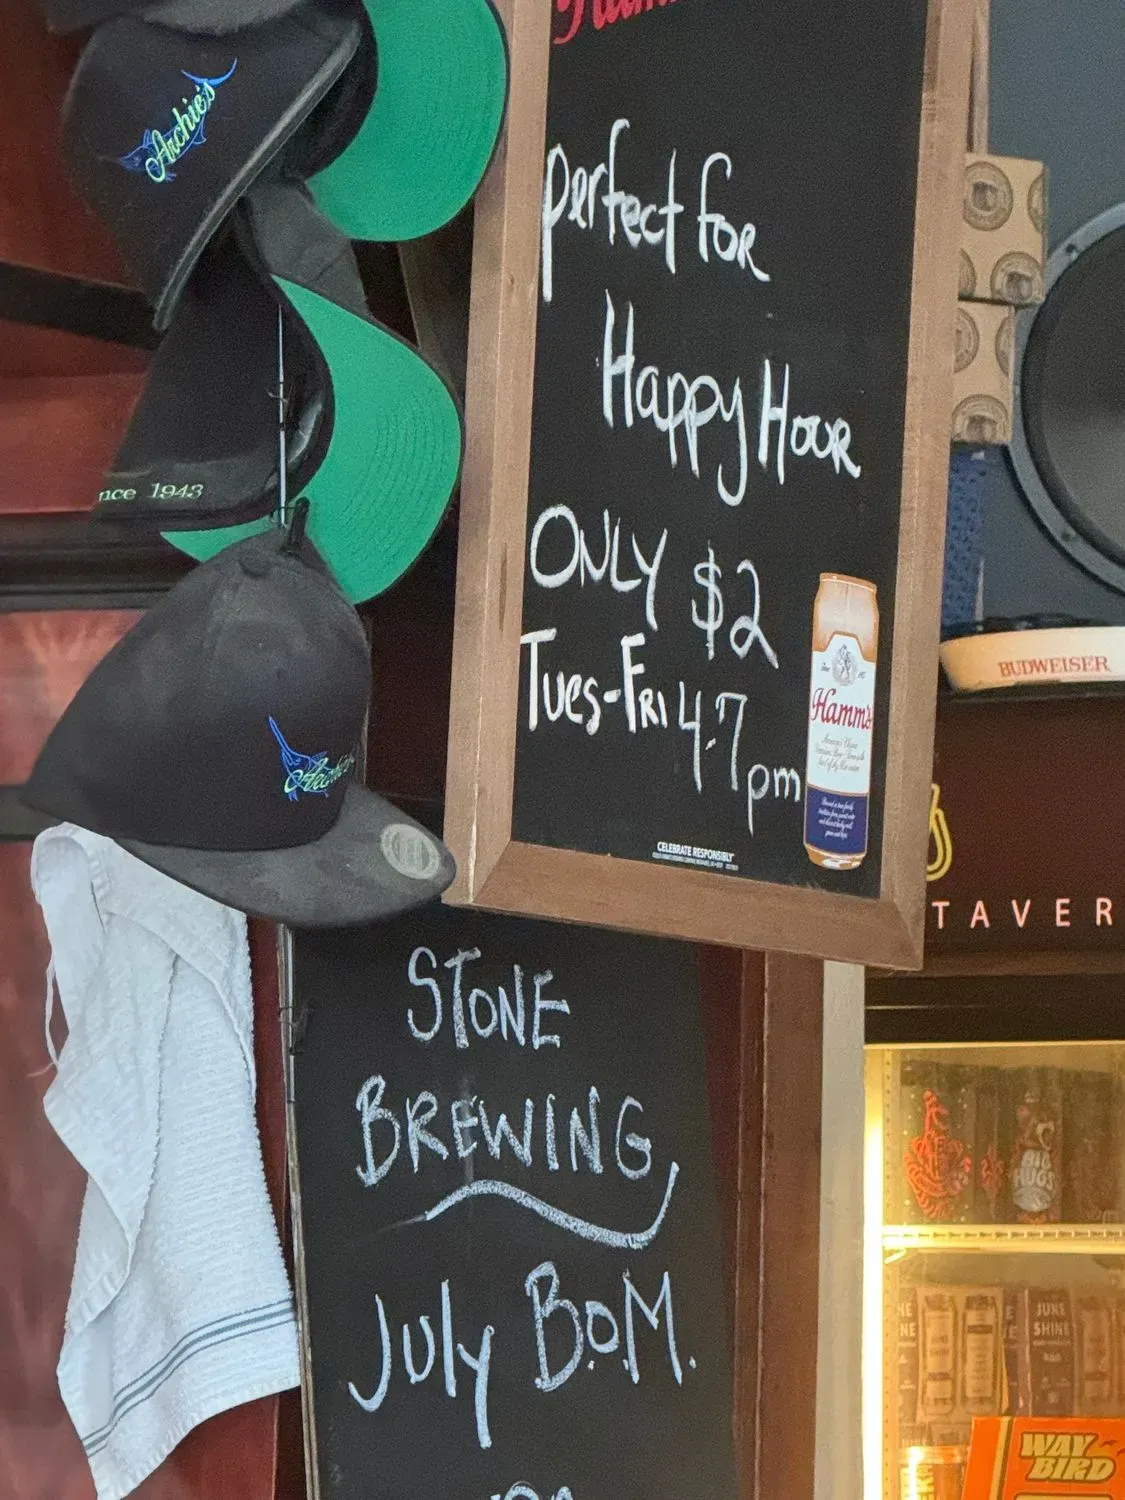 Hamm's
Archie's
perfect for
Happy Hour
ONLY $2
Tues-Fri 4-7
pm
nce 1943
Hamm's
CELEBRATE RESPONSIBLY
BUDWEISER
Archie's
TAVER
STONE
BREWING
July B.o.M.
BIG
HUGS
JUNE
SHINE
WAY
BIRD